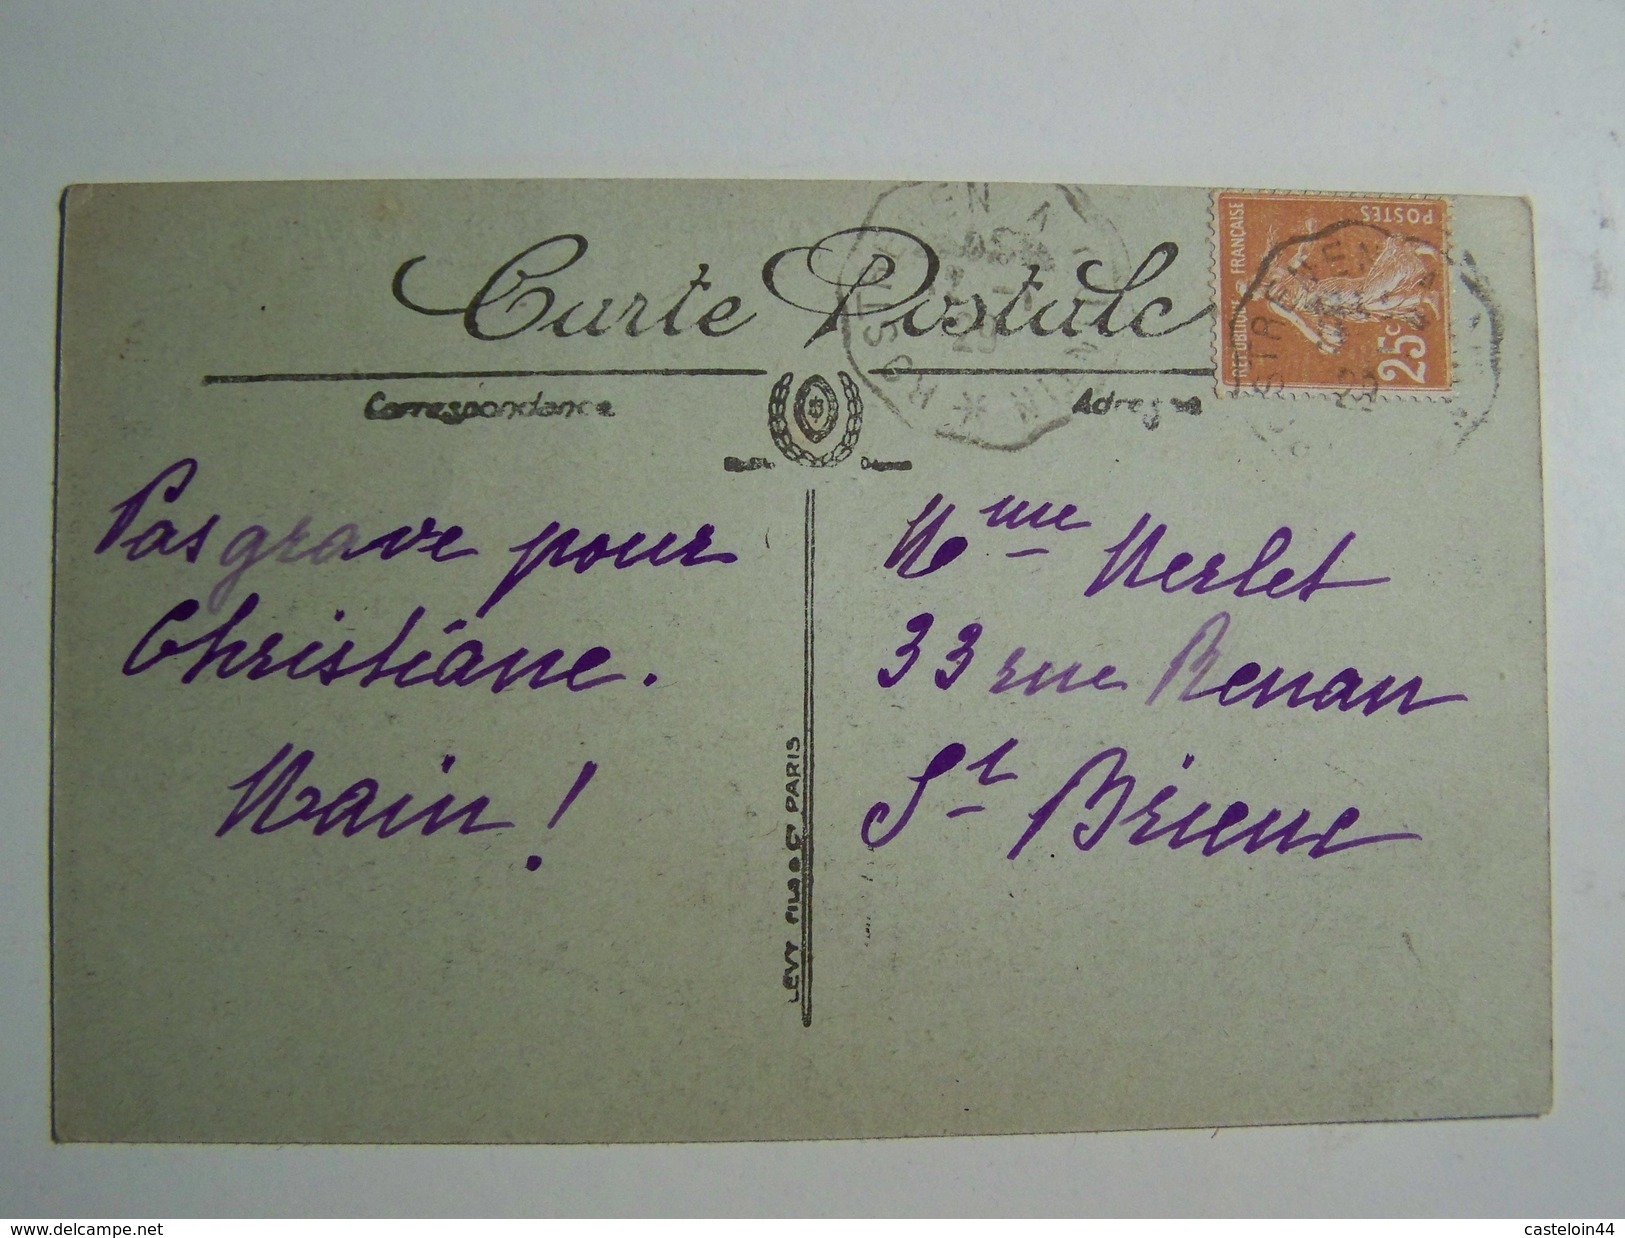 Carte Postale
Correspondance
Adresse
RÉPUBLIQUE FRANÇAISE
POSTES
25c
Pas grave pour
Christiane.
Main !
Mme Merlet
33 rue Renan
St Brieuc
LEVY FILS & Cie PARIS
www.delcampe.net
casteloin44